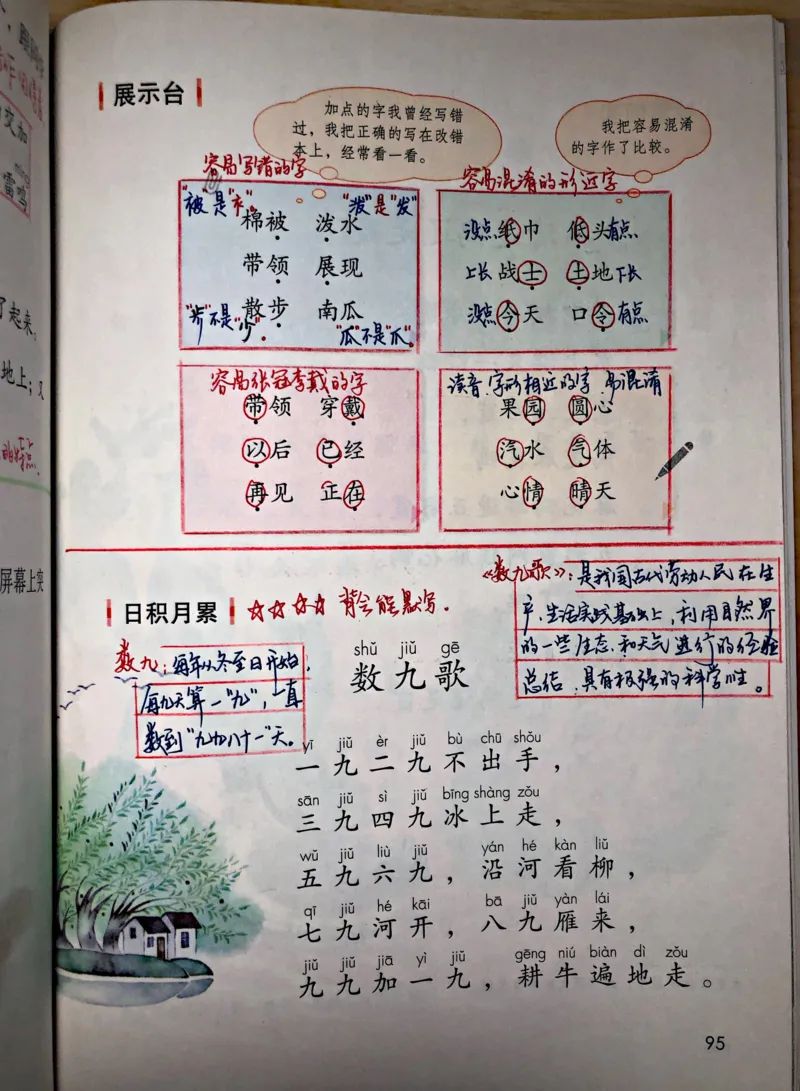 展示台
加点的字我曾经写错
过，我把正确的写在改错
本上，经常看一看。
我把容易混淆
的字作了比较。
容易写错的字
"被是"衤"。
"泼"是"发"
棉被 泼水
带领 展现
散步 南瓜
"步"不是"少"。
"瓜"不是"爪"。
容易混淆的形近字
没点 纸巾 低头 有点
上长 战士 土地 下长
没点 今天 口令 有点
容易张冠李戴的字
带领 穿戴
以后 已经
再见 正在
读音.字形相近的字 易混淆
果园 圆心
汽水 气体
心情 晴天
日积月累
☆☆☆☆ 背会能默写.
《数九歌》:是我国古代劳动人民在生
产.生活实践基础上,利用自然界
的一些生态.和天气进行的经验
总结,具有极强的科学性。
数九:每年从冬至日开始,
每九天算一"九",一直
数到"九九八十一"天。
shǔ jiǔ gē
数九歌
yī jiǔ èr jiǔ bù chū shǒu
一九二九不出手，
sān jiǔ sì jiǔ bīng shàng zǒu
三九四九冰上走，
wǔ jiǔ liù jiǔ yán hé kàn liǔ
五九六九，沿河看柳，
qī jiǔ hé kāi bā jiǔ yàn lái
七九河开，八九雁来，
jiǔ jiǔ jiā yì jiǔ gēng niú biàn dì zǒu
九九加一九，耕牛遍地走。
95
了起来,
地上；又
屏幕上突